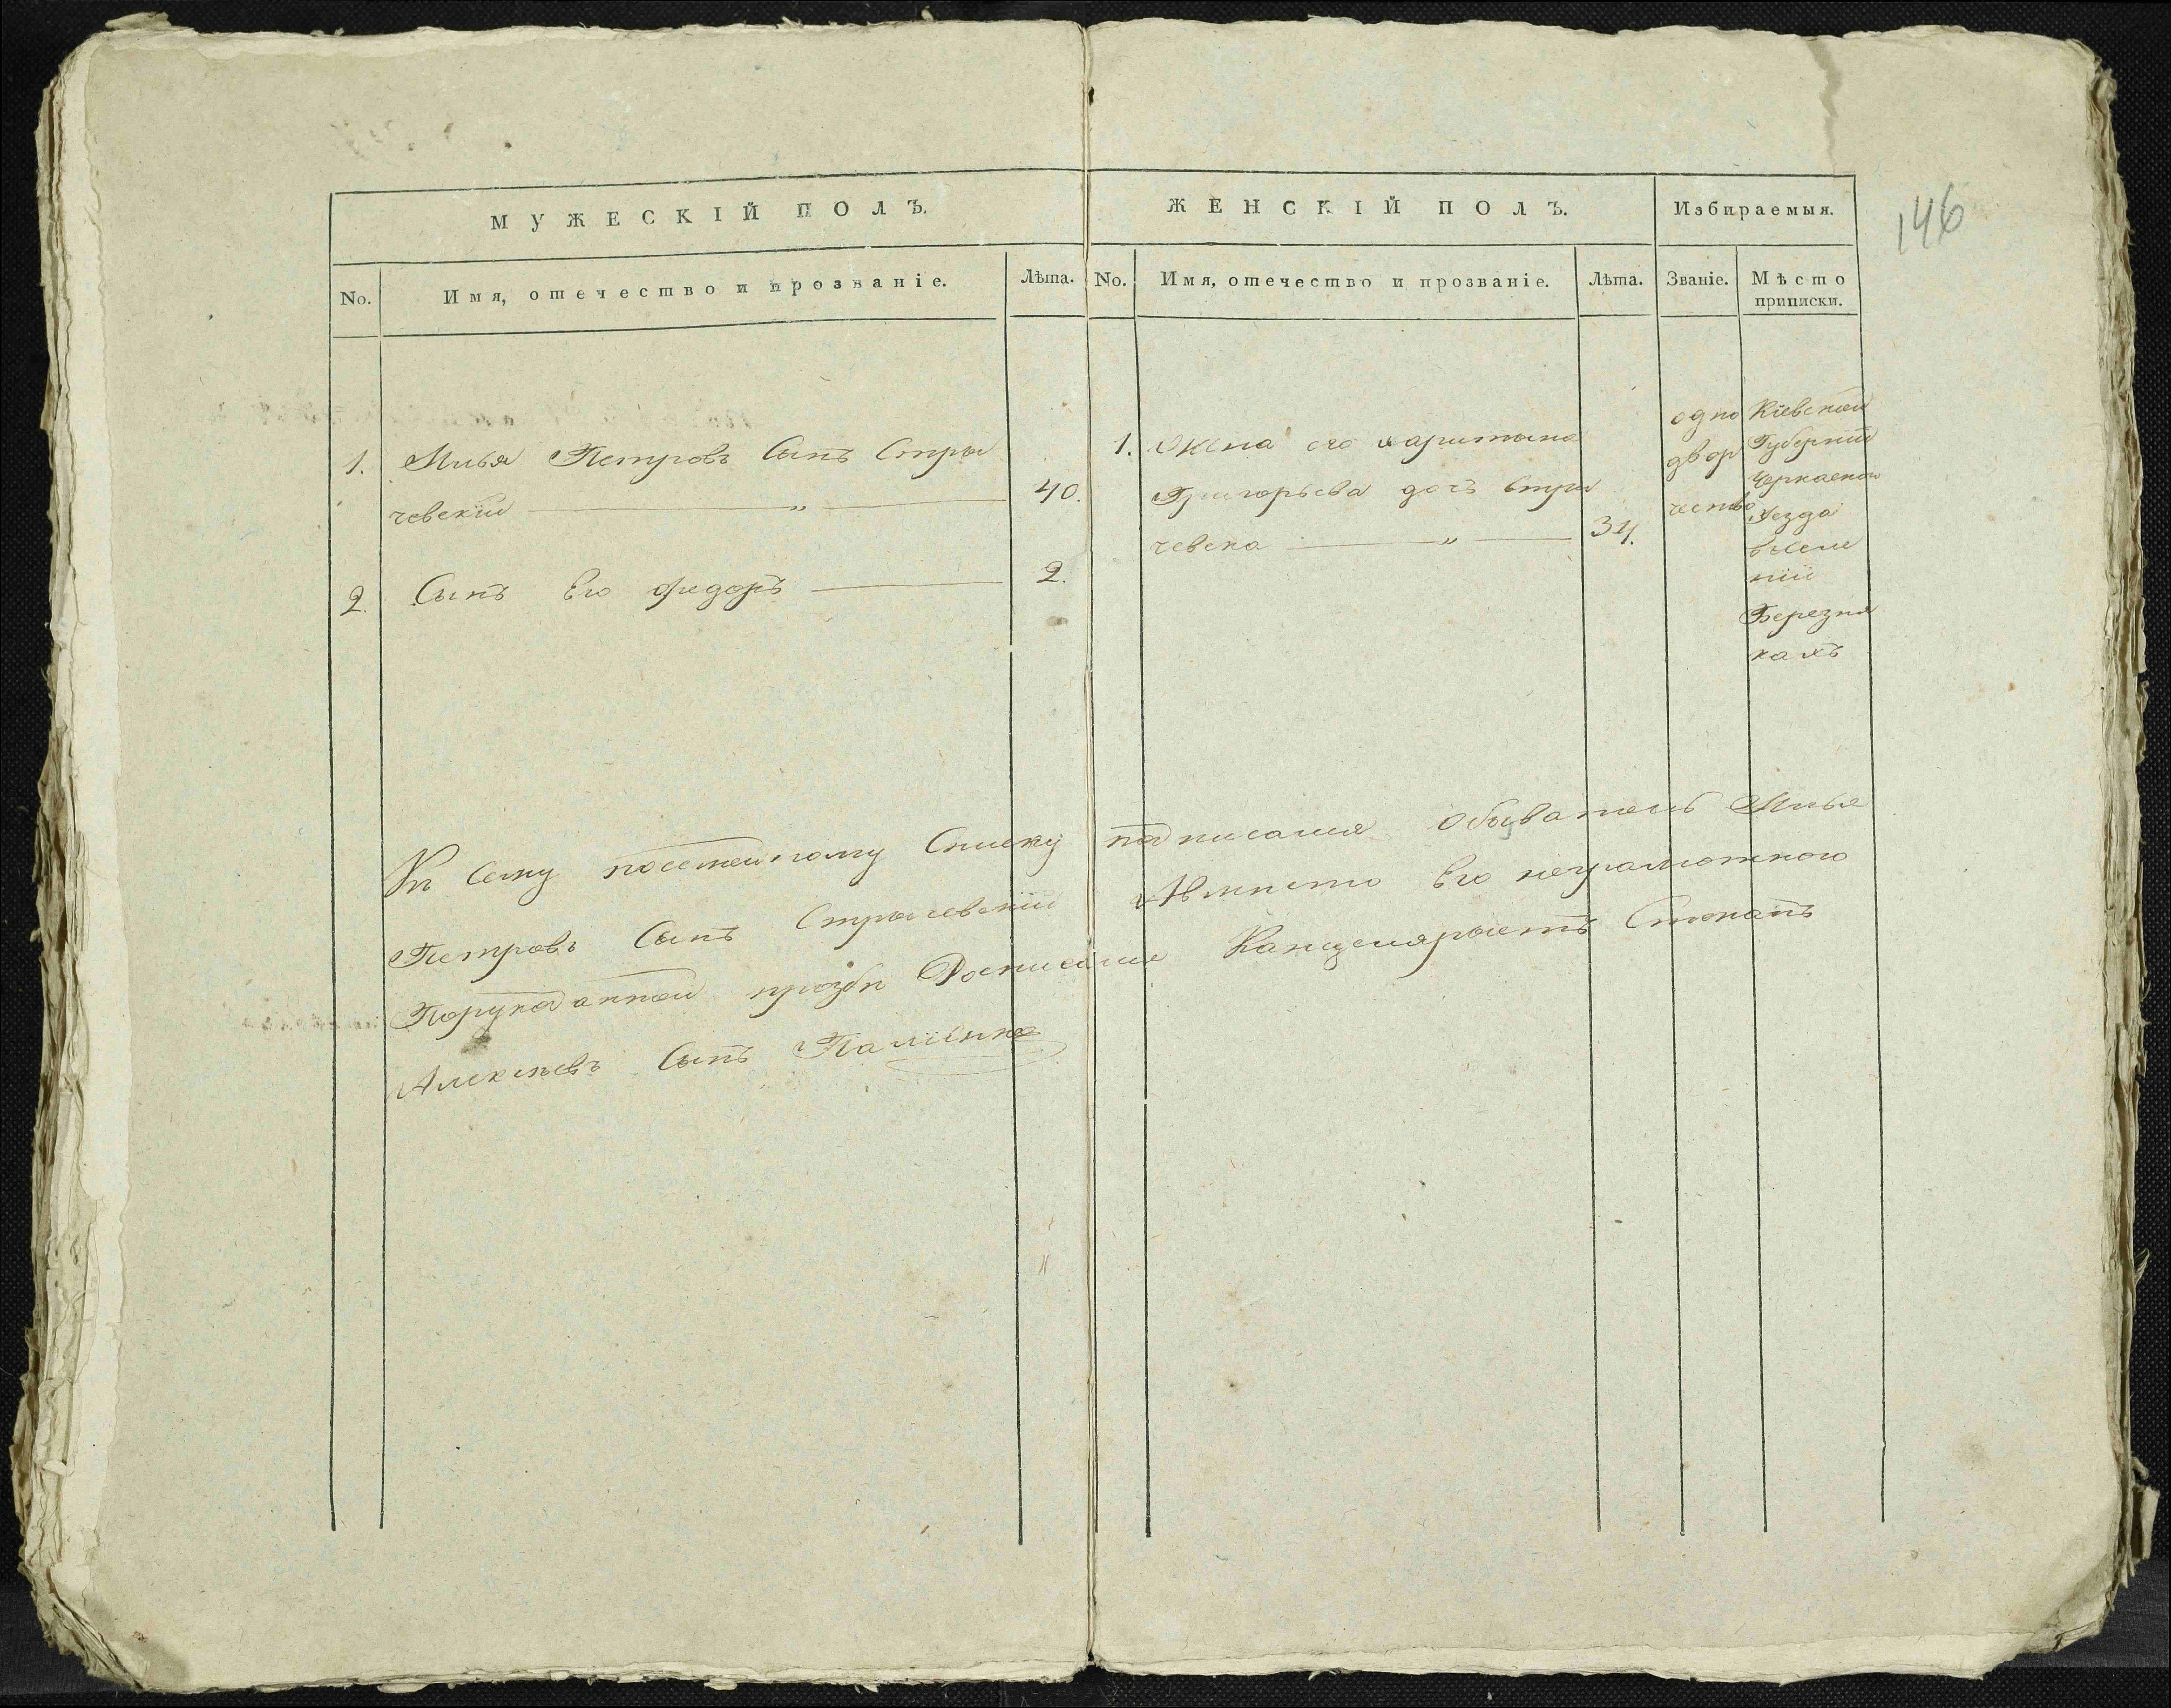 146
МУЖЕСКІЙ ПОЛЪ.
ЖЕНСКІЙ ПОЛЪ.
Избираемыя.
No.
Имя, отечество и прозваніе.
Лѣта.
No.
Имя, отечество и прозваніе.
Лѣта.
Званіе.
Мѣсто
приписки.
1. Илья Петровъ Сынъ Стры
чевскіи — " — 40.
2. Сынъ Его Фидоръ — 2.
1. Жена его харитына
Григорьева дочь Стры
чевска — " — 34.
одно
двор
чество
Кіевской
Губерніи
Черкаской
уезда
вселе
ніи
Березня
кахъ
Къ Сему посемейному Списку подписался Обыватель Илья
Петровъ Сынъ Стрычевскіи Авместо Его неграмотного
Порукоданной прозбѣ Росписался Канцелярыстъ Стокапъ
Алексѣевъ Сынъ Паліенко